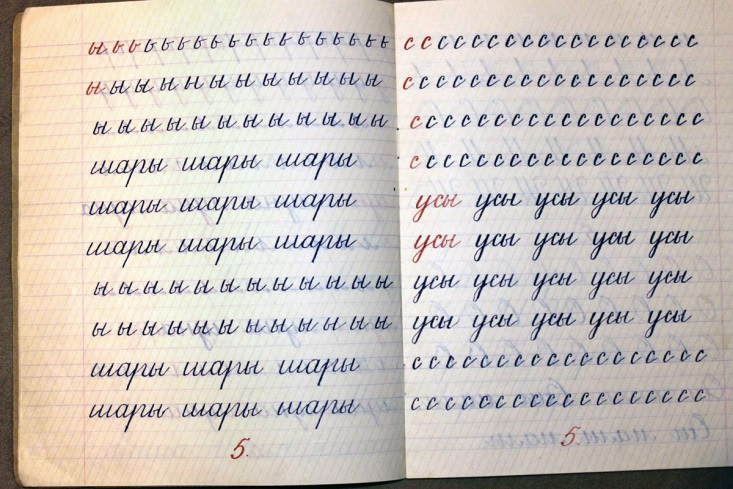 ы ь ь ь ь ь ь ь ь ь ь ь ь ь ь ь ь ь
ы ы ы ы ы ы ы ы ы ы ы ы
ы ы ы ы ы ы ы ы ы ы ы ы
шары шары шары
шары шары шары
шары шары шары
ы ы ы ы ы ы ы ы ы ы ы ы
ы ы ы ы ы ы ы ы ы ы ы ы
шары шары шары
шары шары шары
5.
с с с с с с с с с с с с с с с с с с
с с с с с с с с с с с с с с с с с с
с с с с с с с с с с с с с с с с с с
с с с с с с с с с с с с с с с с с с
усы усы усы усы усы
усы усы усы усы усы
усы усы усы усы усы
усы усы усы усы усы
с с с с с с с с с с с с с с с с с с
с с с с с с с с с с с с с с с с с с
5.